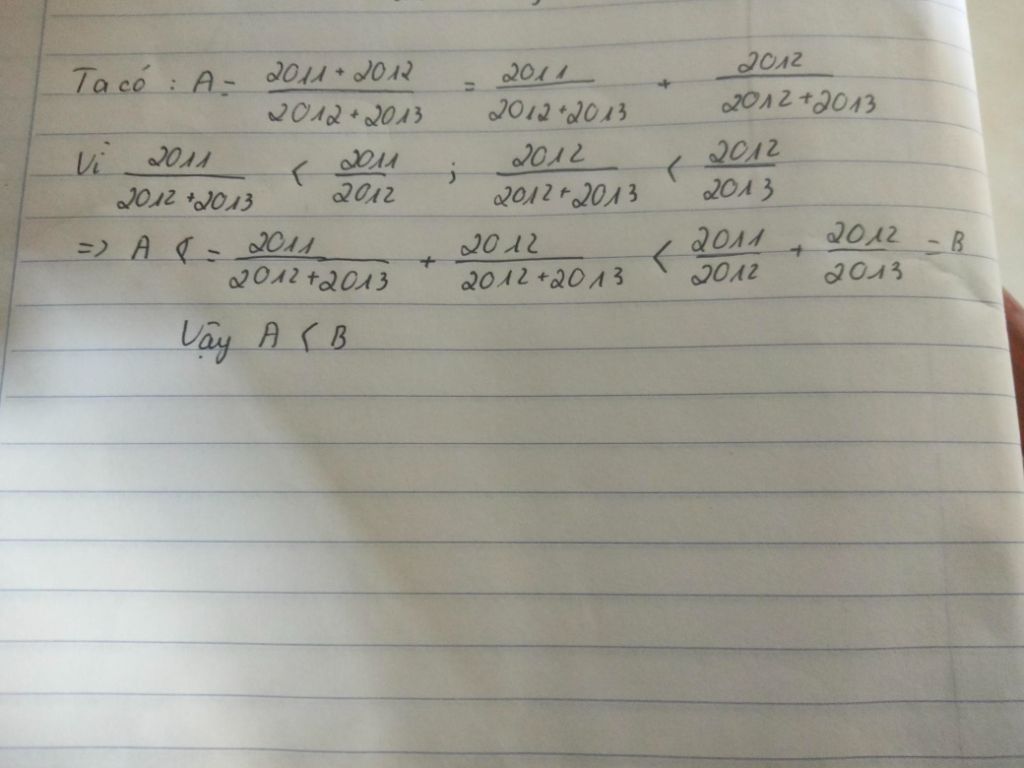 Ta có : A = \frac{2011 + 2012}{2012 + 2013} = \frac{2011}{2012 + 2013} + \frac{2012}{2012 + 2013}
Vì \frac{2011}{2012 + 2013} < \frac{2011}{2012} ; \frac{2012}{2012 + 2013} < \frac{2012}{2013}
=> A = \frac{2011}{2012 + 2013} + \frac{2012}{2012 + 2013} < \frac{2011}{2012} + \frac{2012}{2013} = B
Vậy A < B